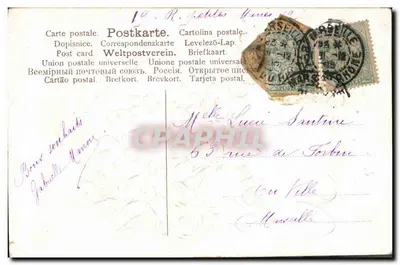 Carte postale. Postkarte. Cartolina postale.
Dopisnice. Correspondenzkarte. Levelező-Lap.
Post card Weltpostverein. Briefkaart
Union postale universelle. Unione postale universale
Всемірный почтовый союзъ. Россія. Открытое
Cartão postal. Bretkort. Brevkort. Tarjeta postal.
MARSEILLE
RHONE
CPAPHIL
Bons souhaits
Gabrielle
Melle Lucie Santini
63 rue de Forbin
En Ville
Marseille